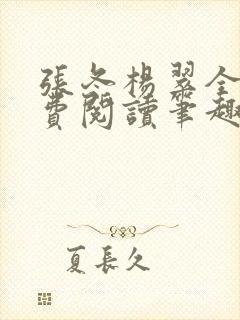 張冬楊翠全
費閱讀筆趣
夏長久